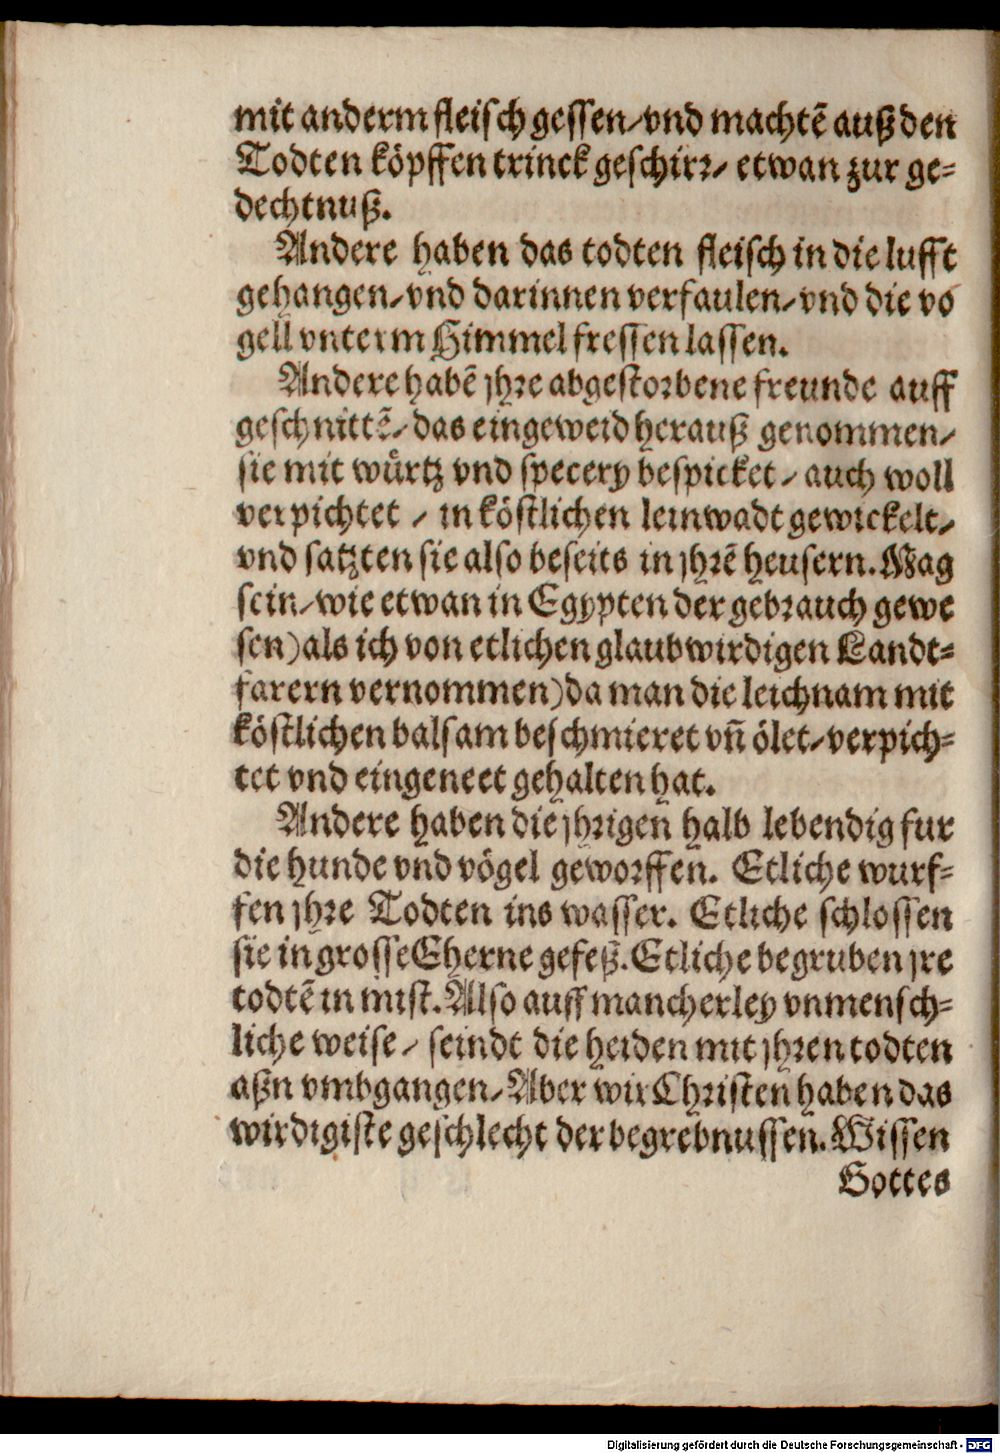 mit anderm fleisch gessen/vnd machtẽ auß den
Todten köpffen trinck geschirr/ etwan zur ge=
dechtnuß.
Andere haben das todten fleisch in die lufft
gehangen/vnd darinnen verfaulen/vnd die vo
gell vnterm Himmel fressen lassen.
Andere habẽ jhre abgestorbene freunde auff
geschnittẽ/das eingeweid herauß genommen/
sie mit wůrtz vnd specery bespicket/ auch woll
verpichtet / in köstlichen leinwadt gewickelt/
vnd satzten sie also beseits in jhrẽ heusern. Mag
sein/wie etwan in Egypten der gebrauch gewe
sen)als ich von etlichen glaubwirdigen Landt=
farern vernommen)da man die leichnam mit
köstlichen balsam beschmieret vñ ölet/verpich=
tet vnd eingeneet gehalten hat.
Andere haben die jhrigen halb lebendig fur
die hunde vnd vögel geworffen. Etliche wurf=
fen jhre Todten ins wasser. Etliche schlossen
sie in grosse Eherne gefeß. Etliche begruben jre
todtẽ in mist. Also auff mancherley vnmensch=
liche weise/ seindt die heiden mit jhren todten
aßn vmbgangen/Aber wir Christen haben das
wirdigiste geschlecht der begrebnussen. Wissen
Gottes
Digitalisierung gefördert durch die Deutsche Forschungsgemeinschaft - DFG